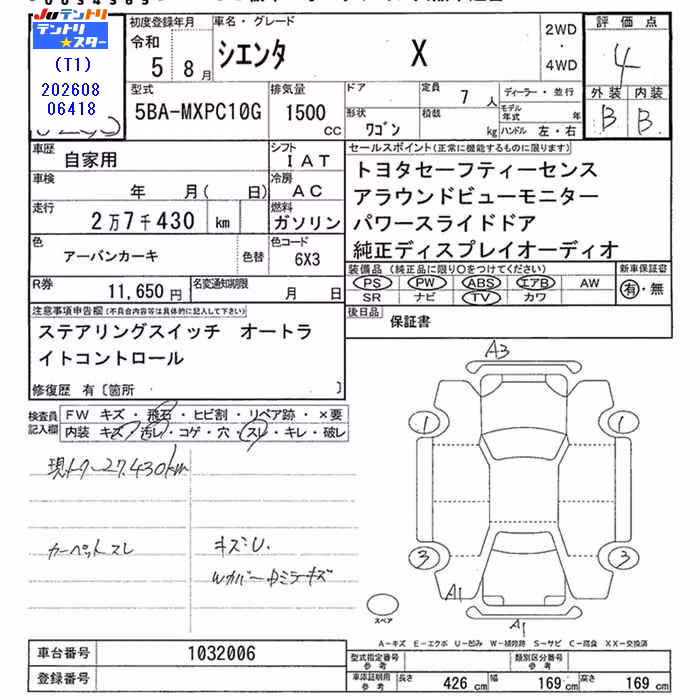 JUテントリ
テントリ★スター
(T1)
202608
06418
初度登録年月
令和
5 8月
車名・グレード
シエンタ X
2WD
・
4WD
評価点
4
外装 内装
B B
型式
5BA-MXPC10G
排気量
1500
CC
ドア
形状
ワゴン
定員
7人
積載
kg
ディーラー・並行
モデル年式 年
ハンドル 左・右
車歴
自家用
シフト
IAT
車検
年 月( 日)
冷房
AC
走行
2万7千430 km
燃料
ガソリン
色
アーバンカーキ
色替
色コード
6X3
R券
11,650円
名変通知期限
月 日
セールスポイント(正常に機能するものに限ります)
トヨタセーフティーセンス
アラウンドビューモニター
パワースライドドア
純正ディスプレイオーディオ
装備品(純正品に限り○をつけてください)
PS PW ABS エアB AW
SR ナビ TV カワ
新車保証書
有・無
後日品
保証書
注意事項申告欄(不具合内容等は具体的に記入して下さい)
ステアリングスイッチ オートラ
イトコントロール
修復歴 有〔箇所 〕
検査員
記入欄
FW キズ・飛石・ヒビ割・リペア跡・×要
内装 キズ・汚レ・コゲ・穴・スレ・キレ・破レ
現メーター27,430km
カーペットスレ
キズU.
Wカバー
A3
1
1
3
3
A1
A1
スペア
A-キズ E-エクボ U-凹み W-補修跡 S-サビ C-腐食 XX-交換済
車台番号
1032006
登録番号
型式指定番号
参考
類別区分番号
参考
車庫証明用
参考
長さ 426cm 幅 169cm 高さ 169cm